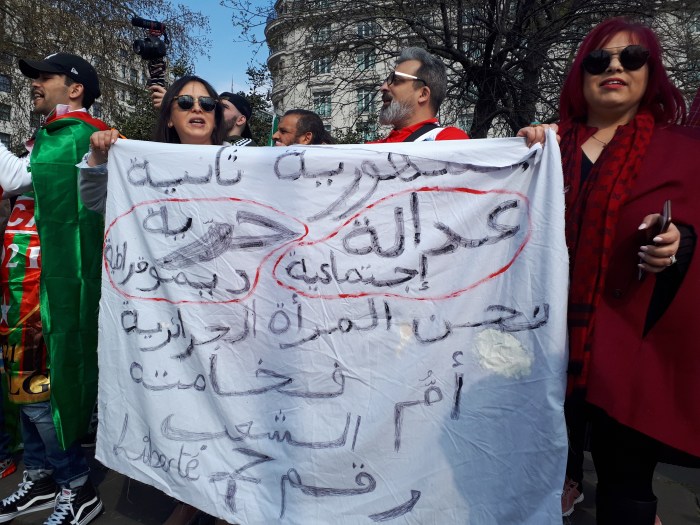 جمهورية ثانية
عدالة إجتماعية
حرية ديموقراطية
نحن المرأة الجزائرية
أمُّ فخامته
الشعب
رقم 7 Liberté